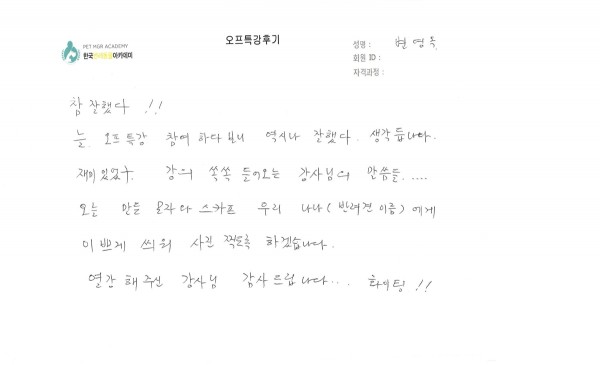 PET MGR ACADEMY
한국반려동물아카데미
오프특강후기
성명 : 변영옥
회원 ID :
자격과정 :
참 잘했다 !!
늘. 오프특강 참여 하다보니 역시나 잘했다. 생각 듭니다.
재미 있었구. 강의 쏙쏙 들어오는 강사님의 말씀들.....
오늘 만든 올라타 스카프 우리 나나(반려견 이름)에게
이쁘게 씌워 사진 찍도록 하겠습니다.
열강 해주신 강사님 감사드립니다... 화이팅 !!